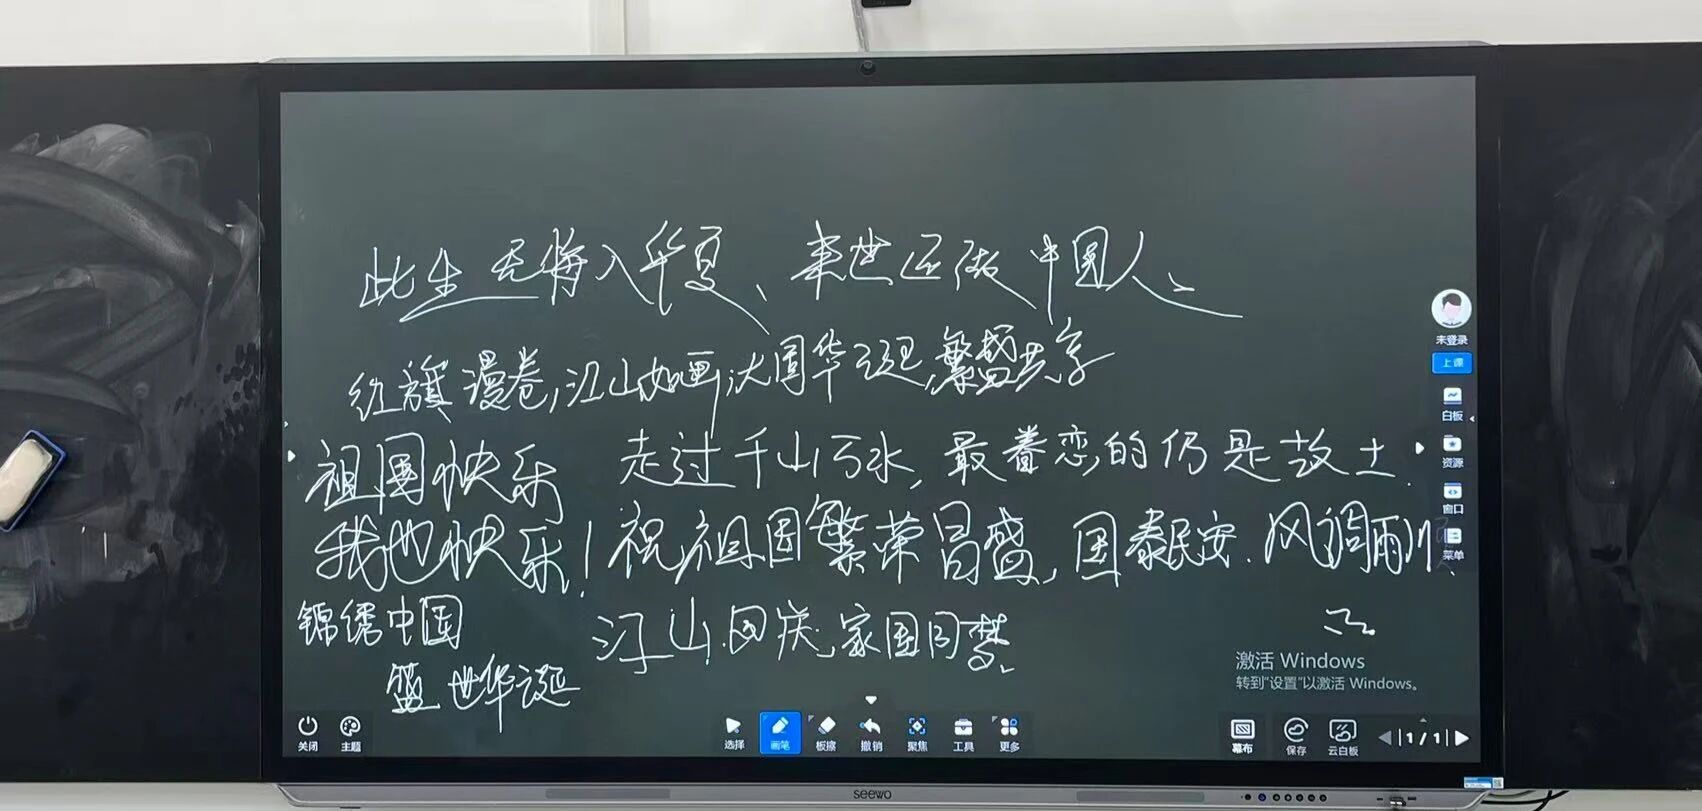 此生无悔入华夏、来世还做中国人、
红旗漫卷,江山如画,大国华诞,繁盛共享
祖国快乐 走过千山万水,最眷恋的仍是故土.
我也快乐！祝祖国繁荣昌盛,国泰民安.风调雨
锦绣中国 江山同庆,家国同梦、
盛世华诞
未登录
上课
白板
资源
窗口
菜单
激活 Windows
转到"设置"以激活 Windows。
关闭 主题 选择 画笔 板擦 撤销 聚焦 工具 更多 幕布 保存 云白板 1 / 1
seewo